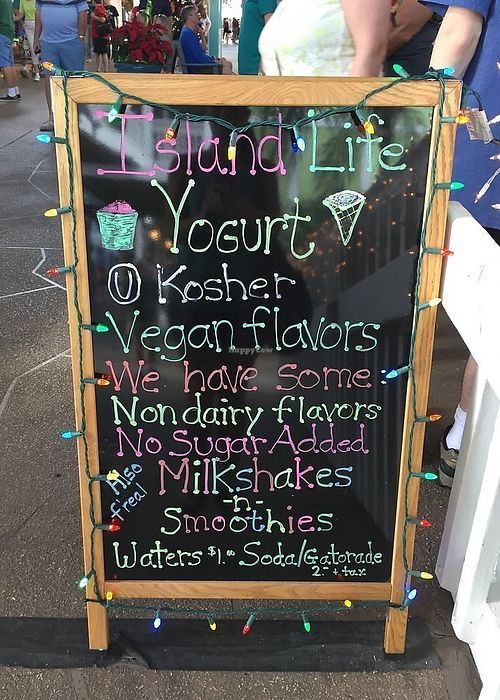 Island Life
Yogurt
U Kosher
Vegan flavors
HappyCow
We have some
Nondairy flavors
No Sugar Added
Also
f'real
Milkshakes
-n-
Smoothies
Waters $1.00 Soda/Gatorade
2.- + tax